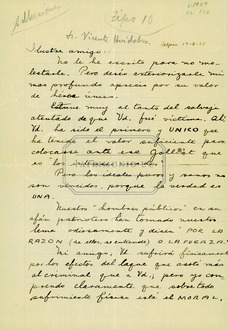 Sr. Vicente Huidobro.
Ilustre amigo:
No le he escrito para no mo-
lestarle. Pero deseo exteriorizarle mi
mas profundo aprecio por su valor
de
Estuve muy al tanto del salvaje
atentado de que Vd. fué victima. Ah!
Vd. ha sido el primero y UNICO que
ha tenido el valor suficiente para
colocarse ante esa
que es los
Pero los ideales puros y sanos no
son vencidos, porque la verdad es
UNA.
Nuestros "hombres públicos" en su
afán patriotero han tomado nuestro
lema odiosamente y dicen POR LA
RAZON (es ellos, se entiende) O LA FUERZA!
Mi amigo, Vd sufrirá físicamente
por los efectos del laque que asestó
al criminal que a Vd.; pero yo com-
prendo claramente que sobre todo
sufrimiento físico está el MORAL.